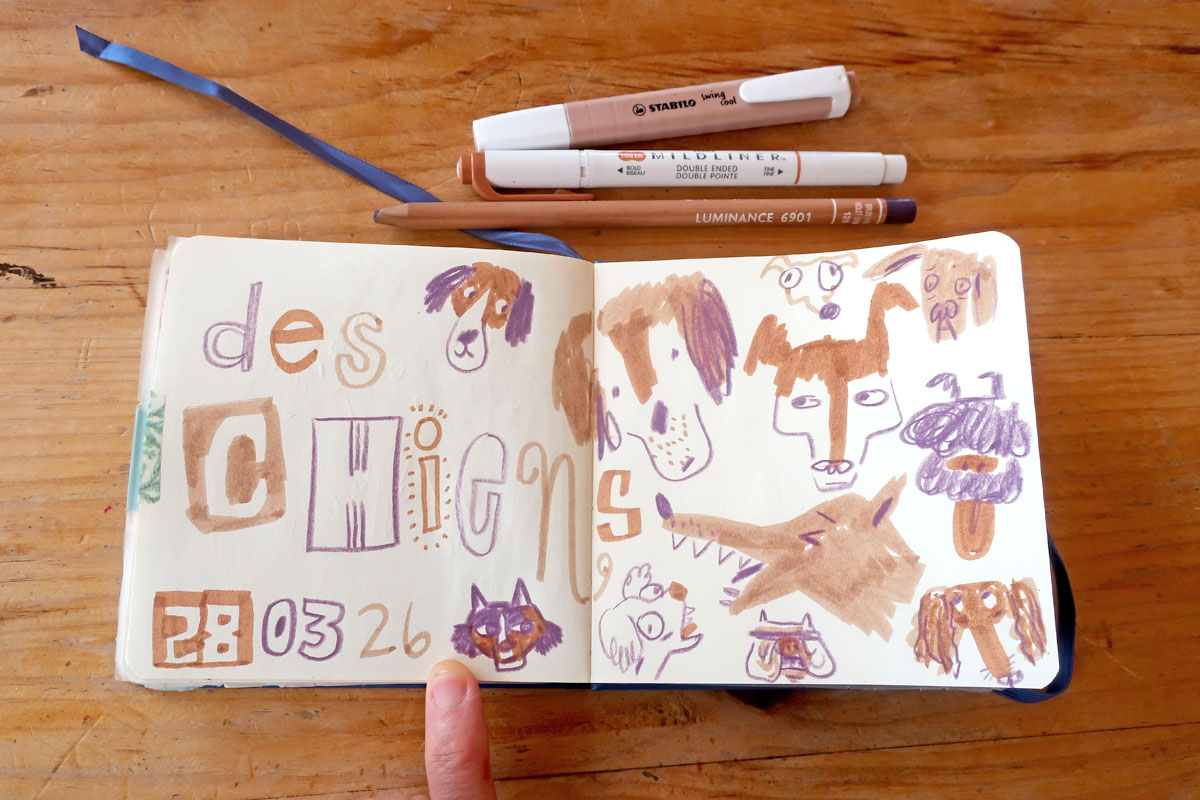 STABILO swing cool
MILDLINER
BOLD
BISEAU
DOUBLE ENDED
DOUBLE POINTE
FINE
FINE
LUMINANCE 6901
des
CHiens
28 03 26